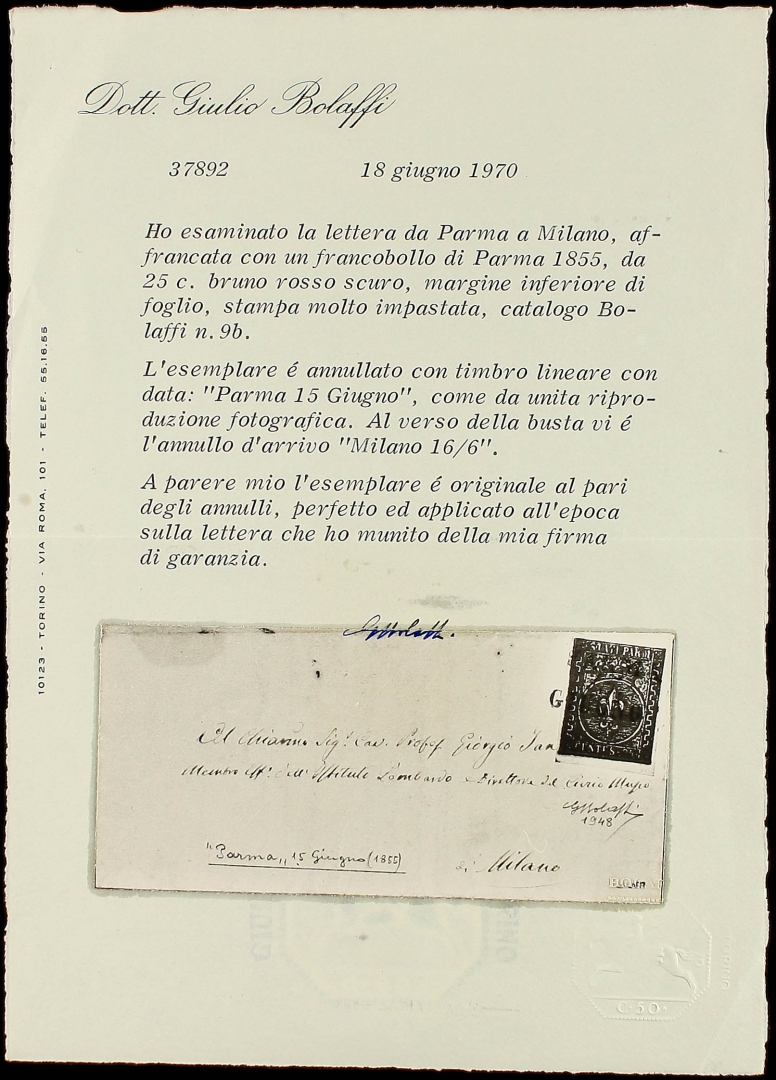 Dott. Giulio Bolaffi
37892 18 giugno 1970
Ho esaminato la lettera da Parma a Milano, af-
francata con un francobollo di Parma 1855, da
25 c. bruno rosso scuro, margine inferiore di
foglio, stampa molto impastata, catalogo Bo-
laffi n. 9b.
L'esemplare é annullato con timbro lineare con
data: "Parma 15 Giugno", come da unita ripro-
duzione fotografica. Al verso della busta vi é
l'annullo d'arrivo "Milano 16/6".
A parere mio l'esemplare é originale al pari
degli annulli, perfetto ed applicato all'epoca
sulla lettera che ho munito della mia firma
di garanzia.
10123 - TORINO - VIA ROMA, 101 - TELEF. 55.16.55
GBolaffi.
STATI PARM
G
CENTES
Al Chiarmo Sig.r Cav. Profes. Giorgio Jan
Membro Eff.o dell'Istituto Lombardo e Direttore del Civico Museo
GBolaffi
1948
"Parma,, 15 Giugno (1855)
di Milano
C·50·